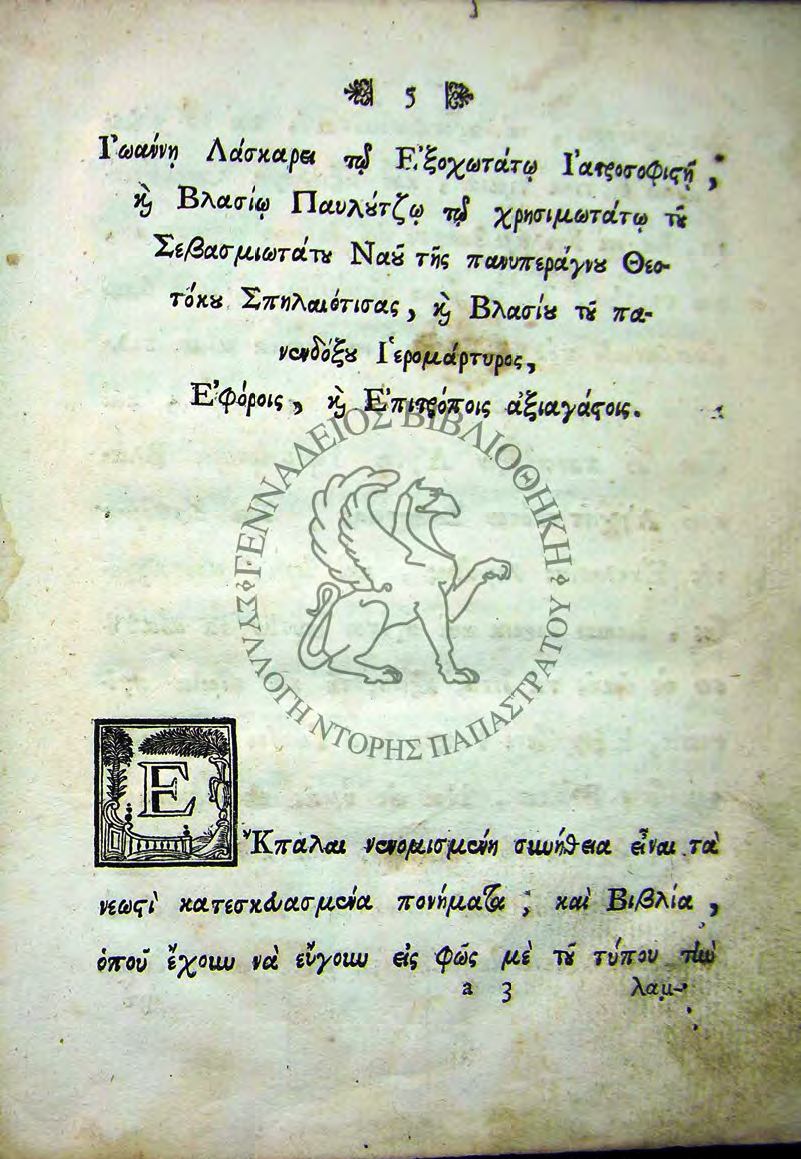 5
Ἰωάννῃ Λάσκαρει τῷ Ἐξοχωτάτῳ Ἰατροσοφιστῇ,
ϗ Βλασίῳ Παυλούτζῳ τῷ χρησιμωτάτῳ τοῦ
Σεβασμιωτάτου Ναοῦ τῆς πανυπεράγνου Θεο-
τόκου Σπηλαιότισας, ϗ Βλασίου τοῦ πα-
νενδόξου Ἱερομάρτυρος,
Ἐφόροις, ϗ Ἐπιτρόποις ἀξιαγάστοις.
ΓΕΝΝΑΔΕΙΟΣ ΒΙΒΛΙΟΘΗΚΗ
ΣΥΛΛΟΓΗ ΝΤΟΡΗΣ ΠΑΠΑΣΤΡΑΤΟΥ
Ε῎Κπαλαι νενομισμένη συνήθεια εἶναι τὰ
νεωστὶ κατεσκευασμένα πονήματα, καὶ Βιβλία,
ὁποῦ ἔχουν νὰ εὔγουν εἰς φῶς μὲ τοῦ τύπου τὴν
a 3 λαμ-